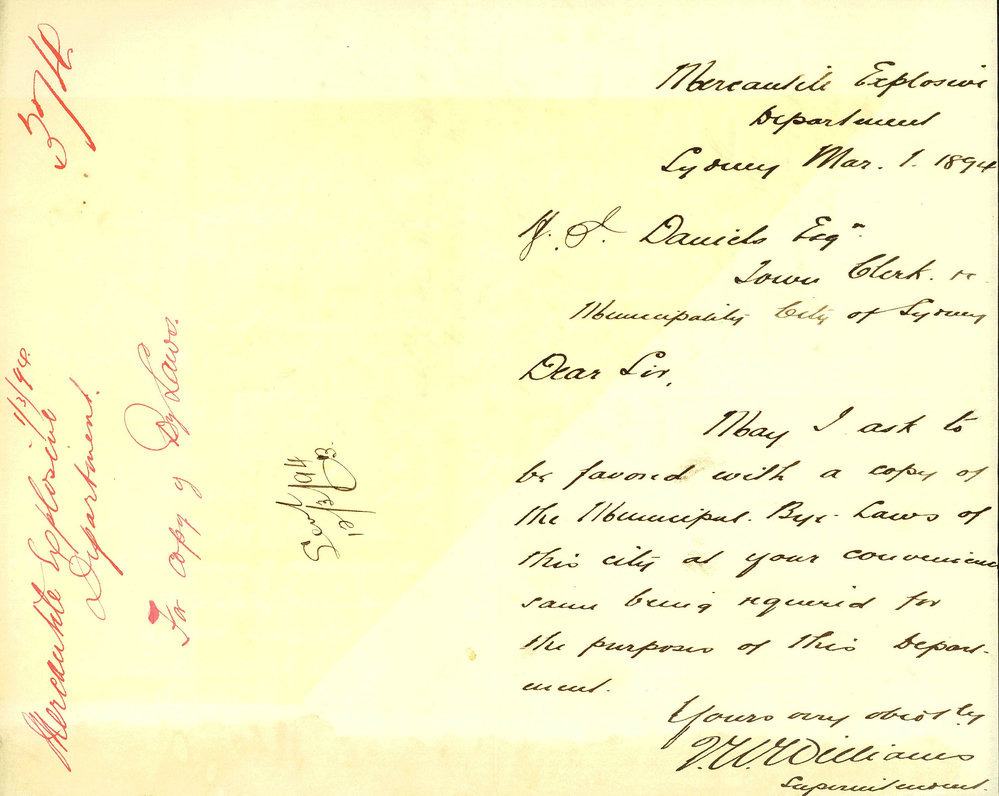 374
Mercantile Explosive 1/3/94.
Department.
For copy of By Laws.
Sent
12/3/94
Mercantile Explosive
Department
Sydney Mar. 1. 1894
H. J. Daniels Esqr.
Town Clerk.
Municipality City of Sydney
Dear Sir,
May I ask to
be favored with a copy of
the Municipal Bye-Laws of
this city at your convenience
same being required for
the purposes of this Depart-
ment.
Yours very obedtly
Williams
Superintendent.